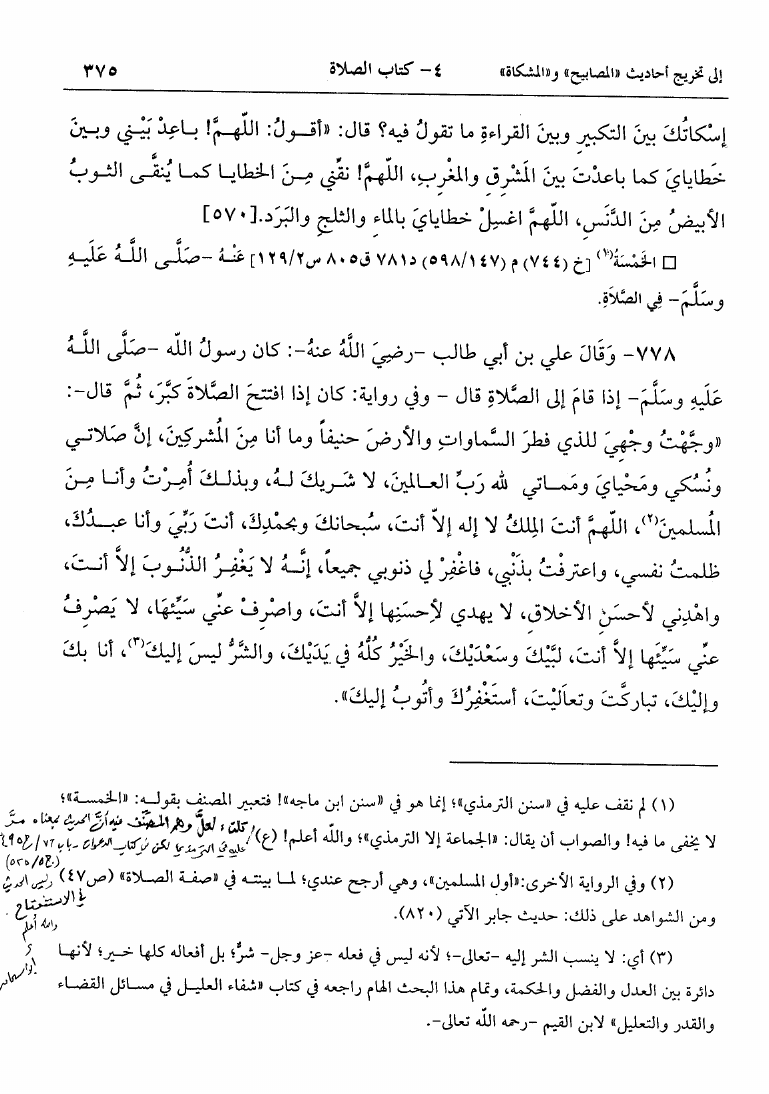 إلى تخريج أحاديث «المصابيح» و«المشكاة» ٤- كتاب الصلاة ٣٧٥
إسْكاتُكَ بينَ التكبيرِ وبينَ القراءةِ ما تقولُ فيه؟ قال: «أقـولُ: اللهـمَّ! بـاعِدْ بَيْـني وبـينَ
خَطايايَ كما باعدْتَ بينَ المَشْرِقِ والمغْربِ، اللهمَّ! نقِّني مِـنَ الخطايـا كمـا يُنقَّـى الثـوبُ
الأبيضُ مِنَ الدَّنَسِ، اللهمَّ اغسِلْ خطايايَ بالماءِ والثلجِ والبَرَدِ.[٥٧٠]
□ الخَمْسَةُ(١) [خ (٧٤٤) م (٥٩٨/١٤٧) د٧٨١ ق٨٠٥ س١٢٩/٢] عَنْـهُ -صَلَّـى اللَّـهُ عَلَيهِ
وسَلَّمَ- فِي الصَّلاَةِ.
٧٧٨- وَقَالَ علي بن أبي طالب -رضيَ اللَّهُ عنهُ-: كان رسولُ الله -صَلَّى اللَّـهُ
عَلَيهِ وسَلَّمَ- إذا قامَ إلى الصَّلاةِ قال - وفي رواية: كان إذا افتتحَ الصَّلاةَ كبَّرَ، ثُمَّ قال-:
«وجَّهْتُ وجْهيَ للذي فطرَ السَّماواتِ والأرضَ حنيفاً وما أنا مِنَ المُشركينَ، إنَّ صَلاتـي
ونُسُكي ومَحْيايَ ومَمـاتي لله رَبِّ العـالمينَ، لا شَـريكَ لـهُ، وبذلـكَ أُمِـرْتُ وأنـا مِـنَ
المُسلمينَ(٢)، اللهمَّ أنتَ المِلكُ لا إله إلاّ أنتَ، سُبحانكَ وبحمْدِكَ، أنتَ رَبِّيَ وأنا عبـدُكَ،
ظلمتُ نفسي، واعترفْتُ بذَنْبي، فاغْفِرْ لي ذنوبي جميعاً، إنَّـهُ لا يَغْفِـرُ الذُّنُـوبَ إلاَّ أنـتَ،
واهْدِني لأحسَنِ الأخلاقِ، لا يهدي لأحسَنِها إلاَّ أنتَ، واصْرِفْ عنِّي سَيِّئَهَا، لا يَصْرِفُ
عنِّي سَيِّئَها إلاَّ أنتَ، لبَّيْكَ وسَعْدَيْكَ، والخَيْرُ كُلُّهُ في يَدَيْكَ، والشَّرُّ ليسَ إليكَ(٣)، أنا بـكَ
وإليْكَ، تباركْتَ وتعالَيْتَ، أستَغْفِرُكَ وأتُوبُ إليكَ».
(١) لم نقف عليه في «سنن الترمذي»؛ إنما هو في «سنن ابن ماجه»! فتعبير المصنف بقولـه: «الخمسـة»؛
لا يخفى ما فيه! والصواب أن يقال: «الجماعة إلا الترمذي»؛ والله أعلم! (ع)
(٢) وفي الرواية الأخرى:«أول المسلمين»، وهي أرجح عندي؛ لما بينته في «صفة الصلاة» (ص٤٧)
ومن الشواهد على ذلك: حديث جابر الآتي (٨٢٠).
في الاستفتاح
والله أعلم
(٣) أي: لا ينسب الشر إليه -تعالى-؛ لأنه ليس في فعله -عز وجل- شرٌّ؛ بل أفعاله كلها خـير؛ لأنهـا
دائرة بين العدل والفضل والحكمة، وتمام هذا البحث الهام راجعه في كتاب «شفاء العليل في مسائل القضـاء
والقدر والتعليل» لابن القيم -رحمه الله تعالى-.